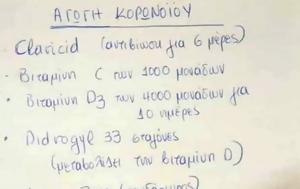 ΑΓΩΓΗ ΚΟΡΩΝΟΪΟΥ
Claricid (αντιβίωση για 6 μέρες)
· Βιταμίνη C των 1000 μονάδων
· Βιταμίνη D3 των 4000 μονάδων για
10 ημέρες
· Didrogyl 33 σταγόνες
(μεταβολίζει την βιταμίνη D)